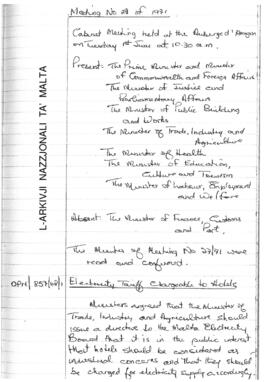 Meeting No 28 of 1971
Cabinet Meeting held at the Auberge d'Aragon
on Tuesday 1st June at 10.30 a.m.
Present: The Prime Minister and Minister
of Commonwealth and Foreign Affairs
The Minister of Justice and
Parliamentary Affairs
The Minister of Public Building
and Works
The Minister of Trade, Industry and
Agriculture
The Minister of Health
The Minister of Education,
Culture and Tourism
The Minister of Labour, Employment
and Welfare
Absent: The Minister of Finance, Customs
and Port.
The Minutes of Meeting No 27/71 were
read and confirmed.
OPM/857/68/1 Electricity Tariff Chargeable to Hotels
Ministers agreed that the Minister of
Trade, Industry and Agriculture should
issue a directive to the Malta Electricity
Board that it is in the public interest
that hotels should be considered as
industrial concerns and that they should
be charged for electricity supply accordingly.
L-ARKIVJI NAZZJONALI TA' MALTA